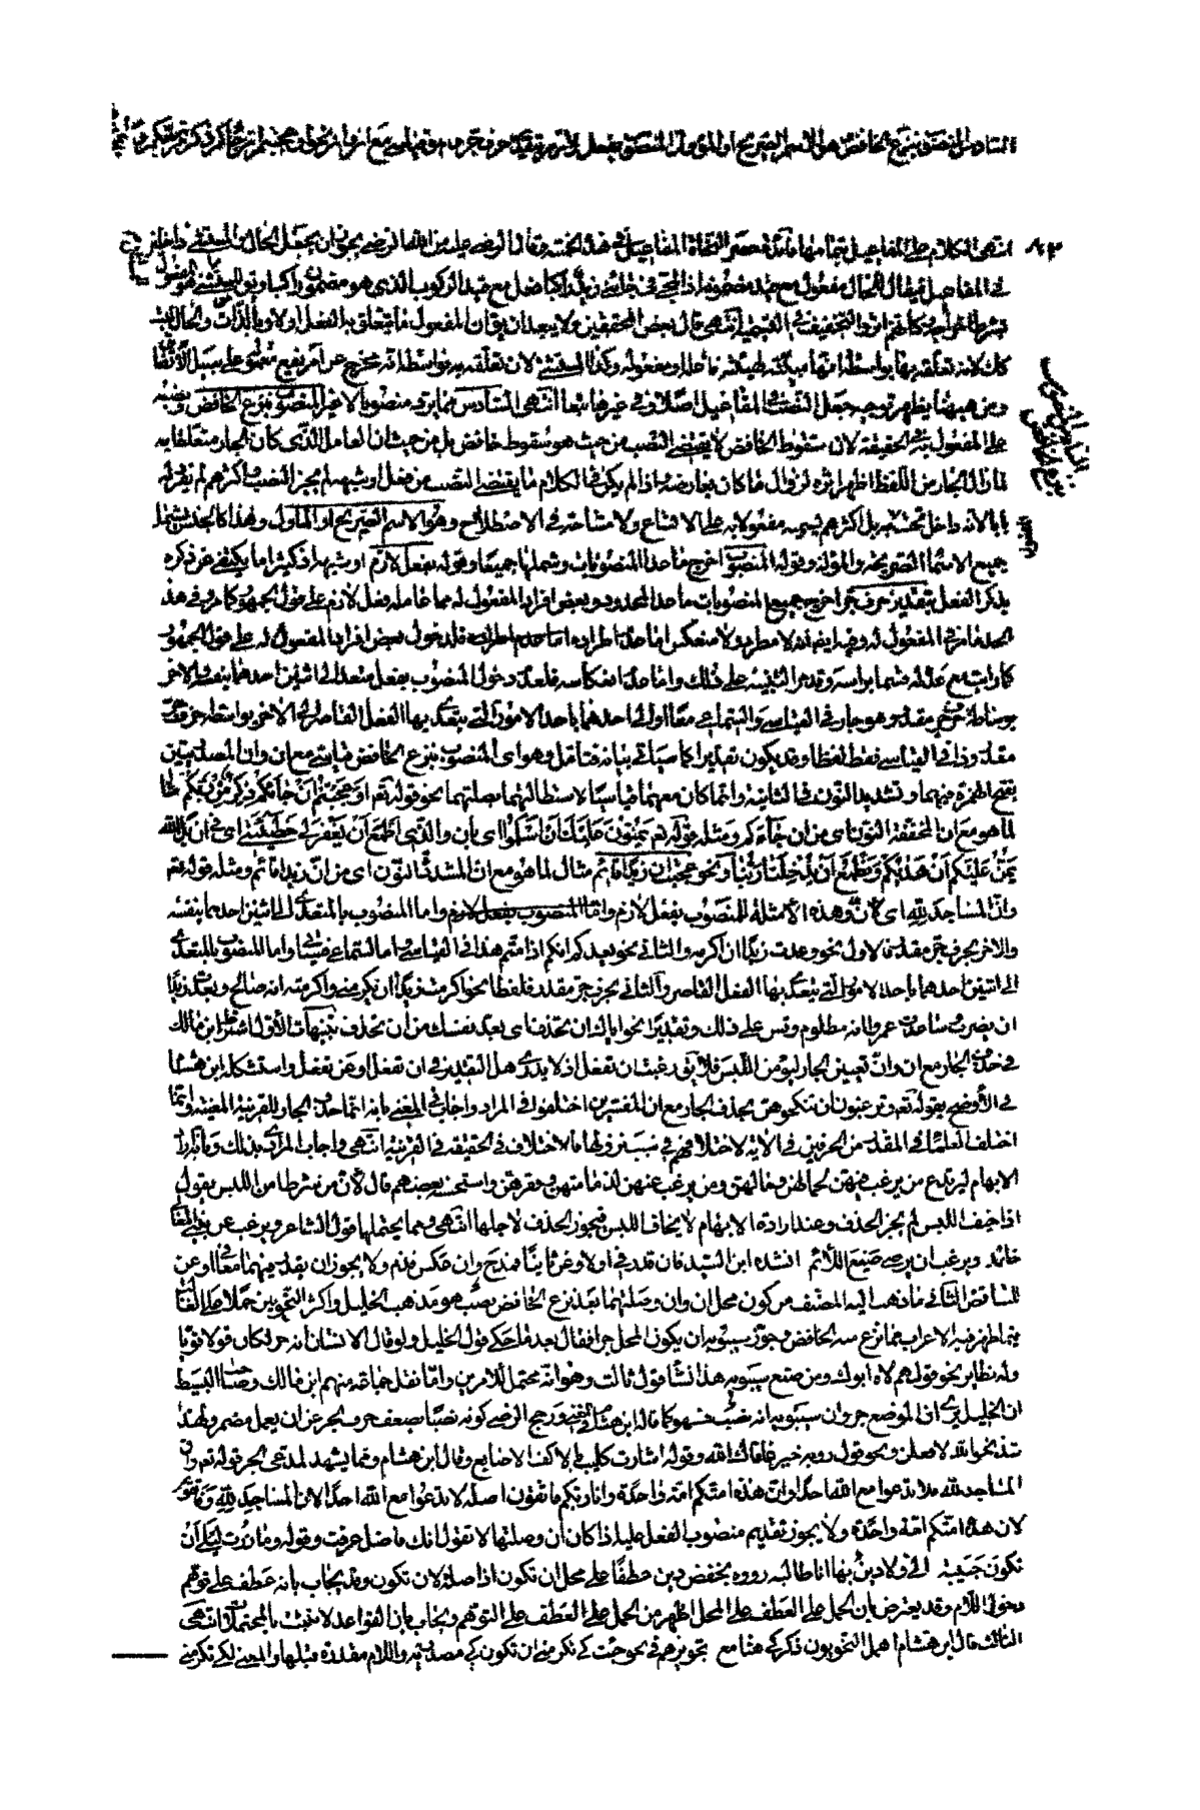 السادس المنصوب بنزع الخافض هو الاسم الصريح او المؤول المنصوب بفعل لازم بتقدير حرف جر وهو قياسي مع ان وان نحو او عجبتم ان جاءكم ذكر من ربكم
٨٢ انتهى الكلام على المفاعيل بتمامها حصر النحاة المفاعيل في هذه الخمسة وقال الرضي رضي يجوز ان يجعل الحال والمستثنى داخلين
في المفاعيل فيقال للحال مفعول مع قيد مضمونه اذ المجيء في جاءني زيد راكبا فعل مع قيد الركوب الذي هو مضمون راكبا ويقال للمستثنى هو المفعول
بشرط اخراجه انتهى قال بعض المحققين ولا يبعد ان يقال ان المفعول ما يتعلق به الفعل اولا وبالذات والحال ليست
كذلك لانه تعلقه بها بواسطة انها مبينة لهيئة فاعله او مفعوله وكذا المستثنى لان تعلقه به بواسطة انه مخرج عن امر
ومن هيهنا يظهر توجيه جعل النصب في المفاعيل اصلا وفي غيرها تبعا انتهى السادس مما يرد منصوبا لا غير المنصوب بنزع الخافض ونصبه
على المفعول به في الحقيقة لان سقوط الخافض لا يقتضي النصب من حيث هو سقوط خافض بل من حيث ان العامل الذي كان الجار متعلقا به
لما زال الجار من اللفظ ظهر اثره لزوال ما كان يعارضه واذا لم يكن في الكلام ما يقتضي النصب من فعل او شبهه لم يجز النصب واكثرهم لم يفرد له
بابا لانه داخل تحت بل اكثرهم يسميه مفعولا به على الاتساع ولا مشاحة في الاصطلاح وهو الاسم الصريح او المأول وهذا كالجنس يشمل
جميع الاسماء الصريحة والمؤولة وقوله المنصوب اخرج ما عدا المنصوبات وشملها جميعا وقوله بفعل لازم او شبهه اذ كثيرا ما يكتفى عن ذكره
بذكر الفعل بتقدير حرف جر اخرج جميع المنصوبات ما عدا المحدود وبعض افراد المفعول له مما عامله فعل لازم على قول الجمهور كما مر في هذا
الحد ما مر في المفعول له وفيه ايضا انه لا مطرد ولا منعكس اما عدم اطراده فلدخول بعض افراد المفعول له على قول الجمهور
كما رايت مع عده له قسما براسه وقد مر التنبيه على ذلك واما عدم انعكاسه فلعدم دخول المنصوب بفعل متعد الى اثنين احدهما بنفسه والاخر
بوساطة حرف مقدر وهو جار في القياسي والسماعي معا او الى احدهما باحد الامور التي يتعدى بها الفعل القاصر والى الاخر بواسطة حرف جر
مقدر وذا في القياسي فقط لفظا وقد يكون تقديرا كما سياتي بيانه فتامل وهو اي المنصوب بنزع الخافض قياسي مع ان وان المصدريتين
بفتح الهمزة فيهما وتشديد النون في الثانية وانما كان معهما قياسيا لاستطالتهما بصلتهما نحو قوله تعالى او عجبتم ان جاءكم ذكر من ربكم
لما هو مع ان المخففة النون اي من ان جاءكم ومثله قوله تعالى يمنون عليك ان اسلموا اي بان والذي اطمع ان يغفر لي خطيئتي اي في ان بل الله
يمن عليكم ان هداكم ونطمع ان يدخلنا ربنا ونحو عجبت ان زيدا قائم مثال لما هو مع ان المشددة النون اي من ان زيدا قائم ومثله قوله تعالى
وان المساجد لله اي لان وهذه الامثلة للمنصوب بفعل لازم واما المنصوب بالمتعدي الى اثنين احدهما بنفسه
والاخر بحرف جر مقدر فالاول نحو وعدت زيدا ان اكرمه والثاني نحو يعدكم انكم اذا متم هذا في القياسي واما السماعي واما المنصوب بالمتعدي
الى اثنين احدهما باحد الامور التي يتعدى بها الفعل القاصر والثاني بحرف جر مقدر فلفظا نحو اكرمت زيدا ان يكرمني
ان يضرب عمرو انه مظلوم وقس على ذلك وتقديرا نحو اياك ان تحذف اي بعد نفسك من ان تحذف تنبيهات الاول شرط ابن مالك
في حذف الجار مع ان وان تعيين الجار ليؤمن اللبس فلا يقال رغبت ان تفعل اذ لا يدرى هل التقدير في ان تفعل او عن تفعل واستشكله ابن هشام
في الاوضح بقوله تعالى وترغبون ان تنكحوهن بحذف الجار مع ان المفسرين اختلفوا في المراد واجاب في المغني بانه انما حذف الجار للقرينة المعينة وانما
اختلف العلماء في المقدر من الحرفين في الاية لاختلافهم في سبب نزولها فالاختلاف في الحقيقة في القرينة انتهى واجاب المرادي بذلك
الابهام ليرتدع من يرغب فيهن لجمالهن ومالهن ومن يرغب عنهن لذمامتهن وفقرهن واستحسنه بعضهم قال لان من شرط امن اللبس يقول
اذا خيف اللبس لم يجز الحذف وعند ارادة الابهام لا يخاف اللبس فيجوز الحذف لاجلها انتهى ومما يحتملها قول الشاعر ويرغب ان يبني المعالي
خالد ويرغب ان يرضى صنيع اللائم انشده ابن السيد فان قدر في اولا وعن ثانيا فمدح وان عكس فذم ولا يجوز ان يقدر فيهما معا في او عن
للتناقض الثاني ما ذهب اليه المصنف من كون محل ان وان وصلتهما بعد نزع الخافض نصب هو مذهب الخليل واكثر النحويين حملا على الغالب
فيما ظهر فيه الاعراب مما نزع منه الخافض وجوز سيبويه ان يكون المحل جرا فقال بعد ما حكى قول الخليل ولو قال الانسان انه جر لكان قولا قويا
وله نظائر نحو قولهم لاه ابوك ومن صنع سيبويه هذا نشا قول ثالث وهو انه محتمل للامرين واما نقل جماعة منهم ابن مالك وصاحب البسيط
ان الخليل يرى ان الموضع جر وان سيبويه انه نصب فسهو كما قاله ابن هشام في المغني ورجح الرضي كونه نصبا بضعف حرف الجر عن ان يعمل مضمرا ولهذا
شذ نحو الله لافعلن ونحو قول رؤبه خير عافاك الله وقوله اشارت كليب بالاكف الاصابع وقال ابن هشام ومما يشهد لمدعي الجر قوله تعالى وان
المساجد لله فلا تدعوا مع الله احدا وان هذه امتكم امة واحدة وانا ربكم فاتقون اصله لا تدعوا مع الله احدا لان المساجد لله
لان هذه امتكم امة واحدة ولا يجوز تقديم منصوب الفعل عليه اذا كان ان وصلتها لا تقول انك فاضل عرفت وقوله وما زرت ليلى ان
تكون حبيبة الي ولا دين بها انا طالبه رووه بخفض دين عطفا على محل ان تكون اذ اصله لان تكون وقد يجاب بانه عطف على توهم
دخول اللام وقد يعترض بان الحمل على العطف على المحل اظهر من الحمل على العطف على التوهم ويجاب بان القواعد لا تثبت بالمحتملات انتهى
الثالث قال ابن هشام اهمل النحويون ذكر كي هنا مع تجويزهم في نحو جئت كي تكرمني ان تكون كي مصدرية واللام مقدرة قبلها والمعنى لكي تكرمني